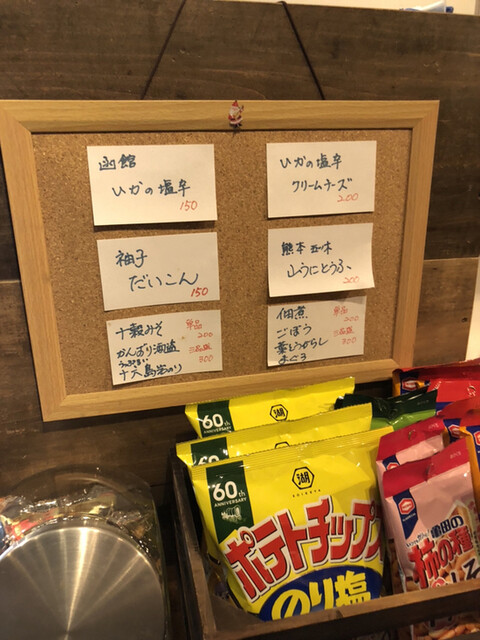 函館
いかの塩辛
150
いかの塩辛
クリームチーズ
200
柚子
だいこん
150
熊本 五木
山うにとうふ
200
十穀みそ 単品 200
かんずり海鼠 三品盛
うっぷるい 300
十六島岩のり
佃煮 単品 200
ごぼう 三品盛 300
葉とうがらし
まぐろ
60th
ANNIVERSARY
湖
KOIKEYA
60th
ANNIVERSARY
湖
KOIKEYA
ポテトチップス
のり塩
亀田の
柿の種